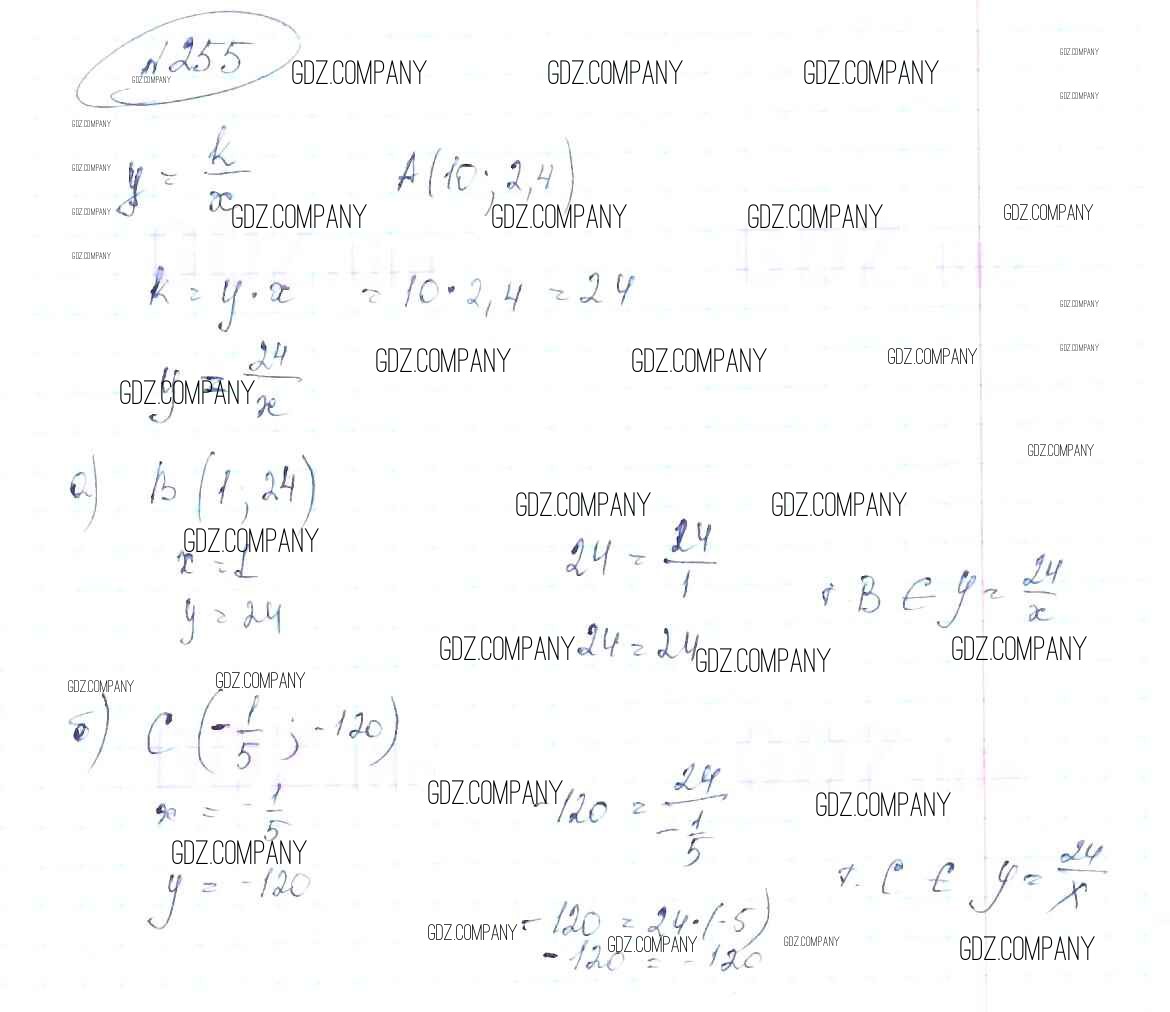 №255
GDZ.COMPANY GDZ.COMPANY GDZ.COMPANY GDZ.COMPANY
GDZ.COMPANY
GDZ.COMPANY
GDZ.COMPANY
GDZ.COMPANY
y = k/x A(10; 2,4)
GDZ.COMPANY
GDZ.COMPANY GDZ.COMPANY GDZ.COMPANY GDZ.COMPANY
GDZ.COMPANY
k = y·x = 10·2,4 = 24
GDZ.COMPANY
GDZ.COMPANY GDZ.COMPANY GDZ.COMPANY GDZ.COMPANY
y = 24/x
GDZ.COMPANY
GDZ.COMPANY
а) B (1; 24)
GDZ.COMPANY GDZ.COMPANY
GDZ.COMPANY
x = 1 24 = 24/1 т. B ∈ y = 24/x
y = 24 24 = 24
GDZ.COMPANY GDZ.COMPANY GDZ.COMPANY
GDZ.COMPANY GDZ.COMPANY
б) C (-1/5; -120)
GDZ.COMPANY GDZ.COMPANY
x = -1/5 -120 = 24/(-1/5)
GDZ.COMPANY
y = -120 т. C ∈ y = 24/x
-120 = 24·(-5)
GDZ.COMPANY GDZ.COMPANY GDZ.COMPANY GDZ.COMPANY
-120 = -120